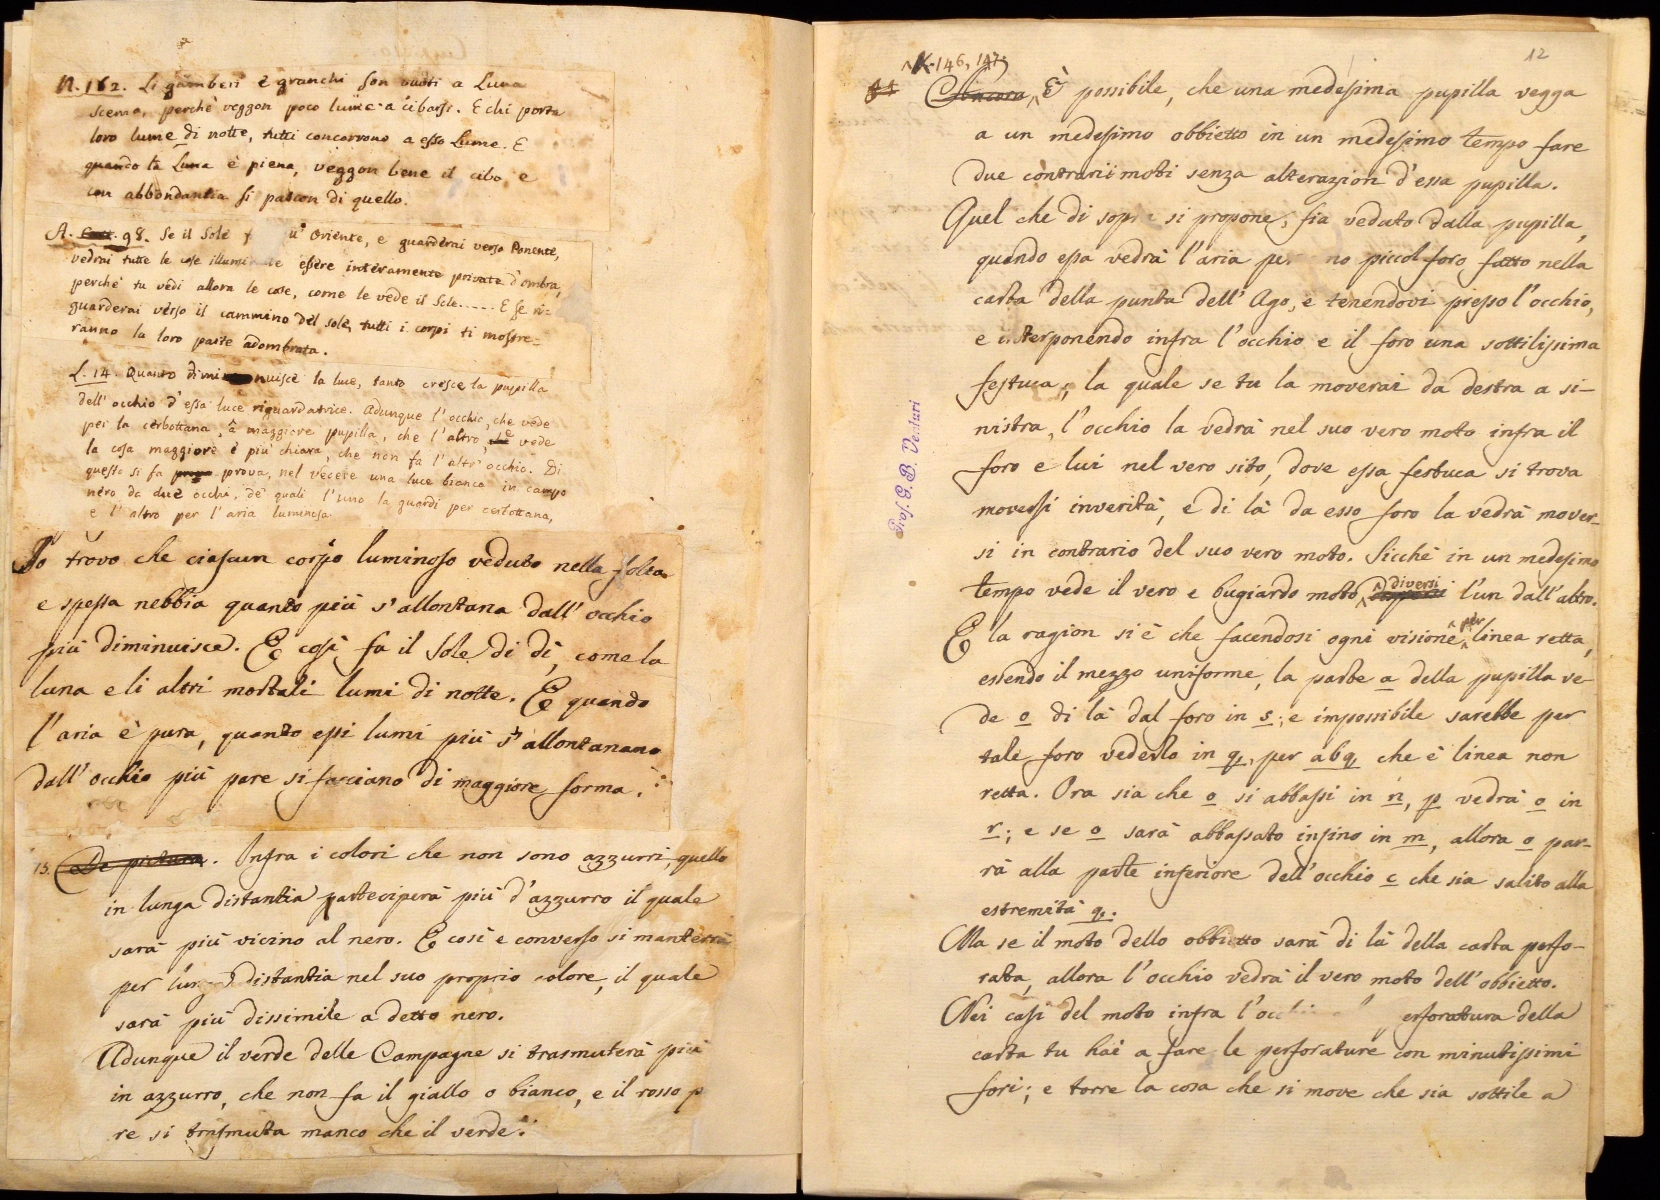 N. 162. Li gamberi e granchi son vuoti a Luna
scema, perchè veggon poco lume a cibarsi. E chi porta
loro lume di notte, tutti concorrono a esso Lume. E
quando la Luna è piena, veggon bene il cibo, e
con abbondantia si pascon di quello.
A. 98. Se il Sole Oriente, e guarderai verso Ponente,
vedrai tutte le cose illuminate essere interamente private d'ombra,
perchè tu vedi allora le cose, come le vede il Sole...... E se ri=
guarderai verso il cammino del sole, tutti i corpi ti mostre=
ranno la loro parte adombrata.
L. 14. Quanto diminuisce la luce, tanto cresce la pupilla
dell'occhio d'essa luce riguardatrice. Adunque l'occhio, che vede
per la cerbottana, à maggiore pupilla, che l'altro, e vede
la cosa maggiore e più chiara, che non fa l'altr'occhio. Di
questo si fa prova, nel vedere una luce bianca in campo
nero da due occhi, de' quali l'uno la guardi per cerbottana,
e l'altro per l'aria luminosa
Io trovo che ciascun corpo luminoso veduto nella folta
e spessa nebbia quanto più s'allontana dall'occhio
più diminuisce. E così fa il Sole di dì, come la
luna e li altri mortali lumi di notte. E quando
l'aria è pura, quanto essi lumi più s'allontanano
dall'occhio più pare si facciano di maggiore forma.
15. De pictura. Infra i colori che non sono azzurri, quello
in lunga distantia parteciperà più d'azzurro il quale
sarà più vicino al nero. E così e converso si manterrà
per lunga distantia nel suo proprio colore, il quale
sarà più dissimile a detto nero.
Adunque il verde delle Campagne si trasmuterà più
in azzurro, che non fa il giallo o bianco, e il rosso p
re si trasmuta manco che il verde.
12
K. 146, 147.
È possibile, che una medesima pupilla vegga
a un medesimo obbietto in un medesimo tempo fare
due contrarii moti senza alterazion d'essa pupilla.
Quel che di sopra si propone, fia veduto dalla pupilla,
quando essa vedrà l'aria per no piccol foro fatto nella
carta della punta dell'Ago, e tenendovi presso l'occhio,
e interponendo infra l'occhio e il foro una sottilissima
festuca, la quale se tu la moverai da destra a si-
nistra, l'occhio la vedrà nel suo vero moto infra il
foro e lui nel vero sito, dove essa festuca si trova
moversi inverità, e di là da esso foro la vedrà mover-
si in contrario del suo vero moto. Sicchè in un medesimo
tempo vede il vero e bugiardo moto diversi l'un dall'altro.
E la ragion si è che facendosi ogni visione per linea retta,
essendo il mezzo uniforme, la parte a della pupilla ve-
de o di là dal foro in s; e impossibile sarebbe per
tale foro vederlo in q, per abq che è linea non
retta. Ora sia che o si abbassi in n, p vedrà o in
r; e se o sarà abbassato insino in m, allora o par-
rà alla parte inferiore dell'occhio c che sia salito alla
estremità q.
Ma se il moto dello obbietto sarà di là della carta perfo-
rata, allora l'occhio vedrà il vero moto dell'obbietto.
Nei casi del moto infra l'occhi erforatura della
carta tu hai a fare le perforature con minutissimi
fori; e torre la cosa che si move che sia sottile a
Prof. G. B. Venturi